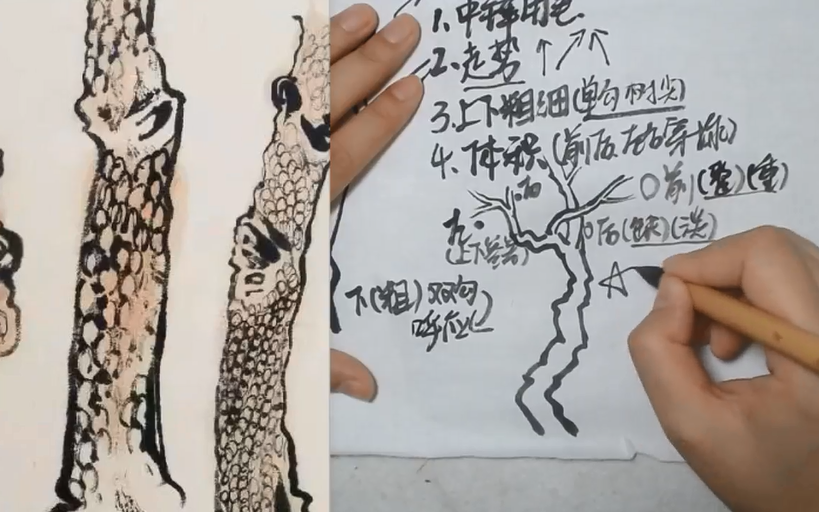 1、中锋用笔
2、走势
3、上下粗细(单勾树尖)
4、体积(前后左右穿插)
后
前(整)(重)
左
后(缺)(淡)
(上下
下(粗)双勾
呼应